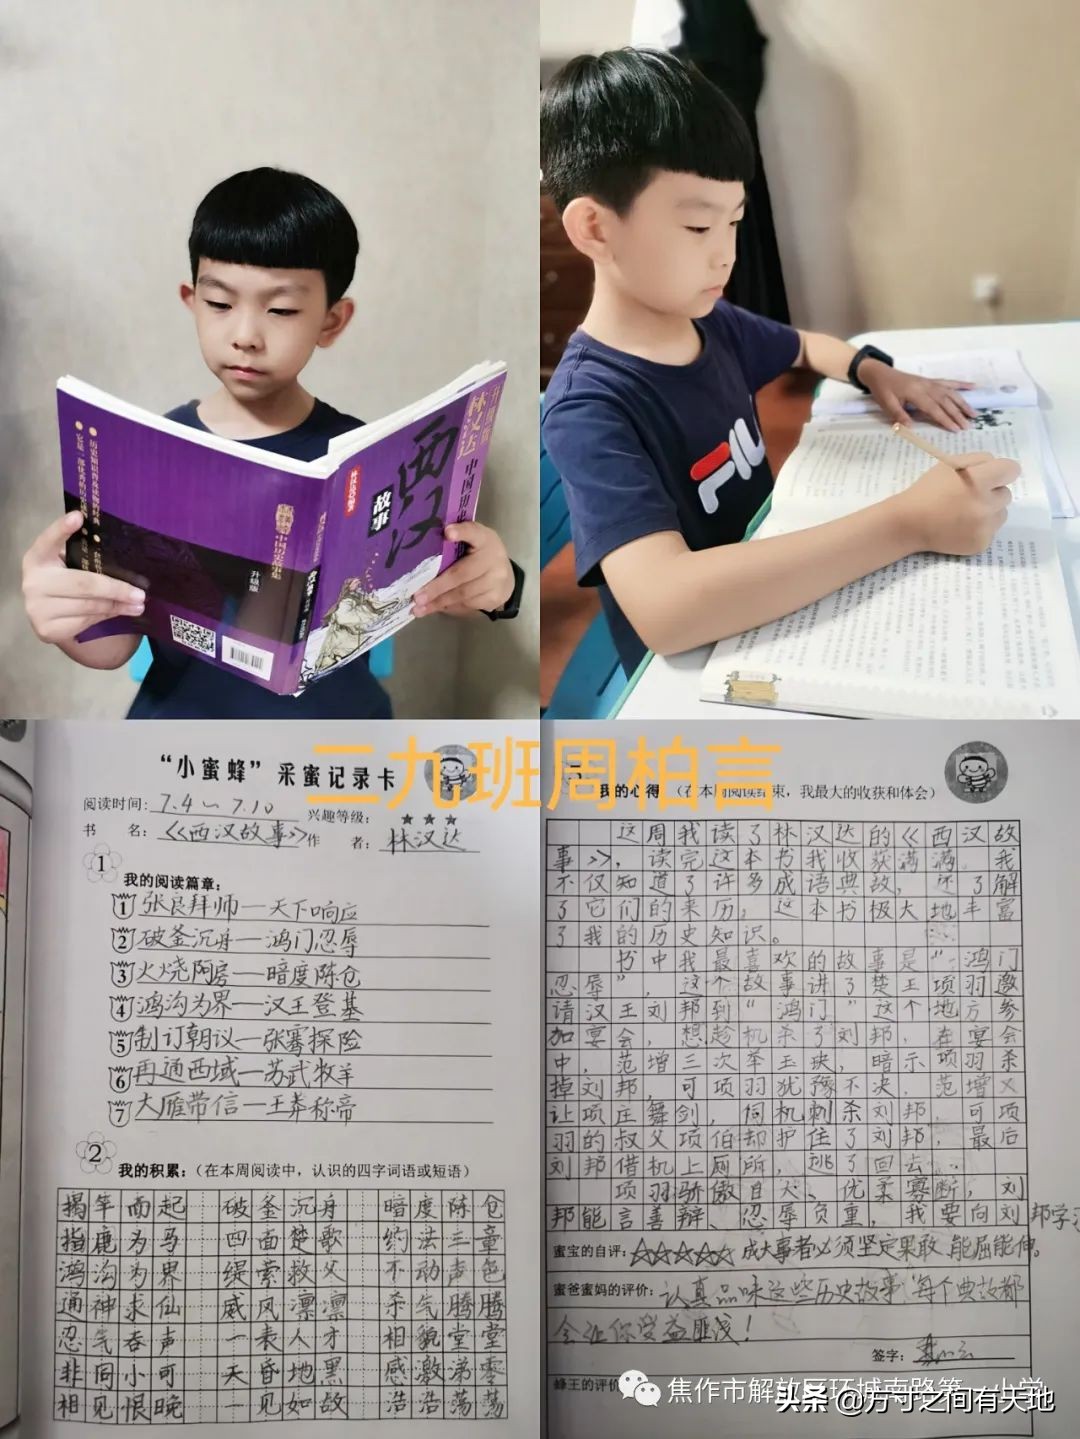 升级版
林汉达
中国历史
西汉
故事
林汉达编著
历史知识普及读物的经典
林汉达中国历史故事集
升级版
FILA
二九班周柏言
“小蜜蜂”采蜜记录卡
阅读时间：7.4～7.10
兴趣等级：★★★
书名：《西汉故事》作者：林汉达
1 我的阅读篇章：
1 张良拜师—天下响应
2 破釜沉舟—鸿门忍辱
3 火烧阿房—暗度陈仓
4 鸿沟为界—汉王登基
5 制订朝议—张骞探险
6 再通西域—苏武牧羊
7 大雁带信—王莽称帝
2 我的积累：（在本周阅读中，认识的四字词语或短语）
揭竿而起 破釜沉舟 暗度陈仓
指鹿为马 四面楚歌 约法三章
鸿沟为界 缇萦救父 不动声色
通神求仙 威风凛凛 杀气腾腾
忍气吞声 一表人才 相貌堂堂
非同小可 天昏地黑 感激涕零
相见恨晚 一见如故 浩浩荡荡
我的心得（在本周阅读结束，我最大的收获和体会）
这周我读了林汉达的《西汉故
事》，读完这本书我收获满满。我
不仅知道了许多成语典故，还了解
了它们的来历，这本书极大地丰富
了我的历史知识。
书中我最喜欢的故事是“鸿门
忍辱”，这个故事讲了楚王项羽邀
请汉王刘邦到“鸿门”这个地方参
加宴会，想趁机杀了刘邦，在宴会
中，范增三次举玉玦，暗示项羽杀
掉刘邦，可项羽犹豫不决，范增又
让项庄舞剑，伺机刺杀刘邦，可项
羽的叔父项伯却护住了刘邦，最后
刘邦借机上厕所，逃了回去……
项羽骄傲自大、优柔寡断，刘
邦能言善辩、忍辱负重，我要向刘邦学习
蜜宝的自评：☆☆☆☆☆ 成大事者必须坚定果敢、能屈能伸。
蜜爸蜜妈的评价：认真品味这些历史故事，每个典故都
会让你受益匪浅！
签字：
蜂王的评价
焦作市解放区环城南路第一小学
头条@方寸之间有天地